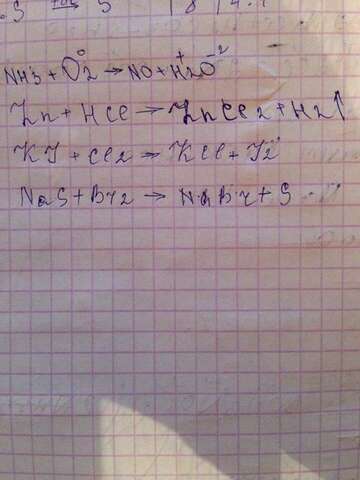 NH3 + O2⁰ → NO + H2⁺O⁻²
Zn + HCl → ZnCl2 + H2↑
KJ + Cl2 → KCl + J2
NaS + Br2 → NaBr + S